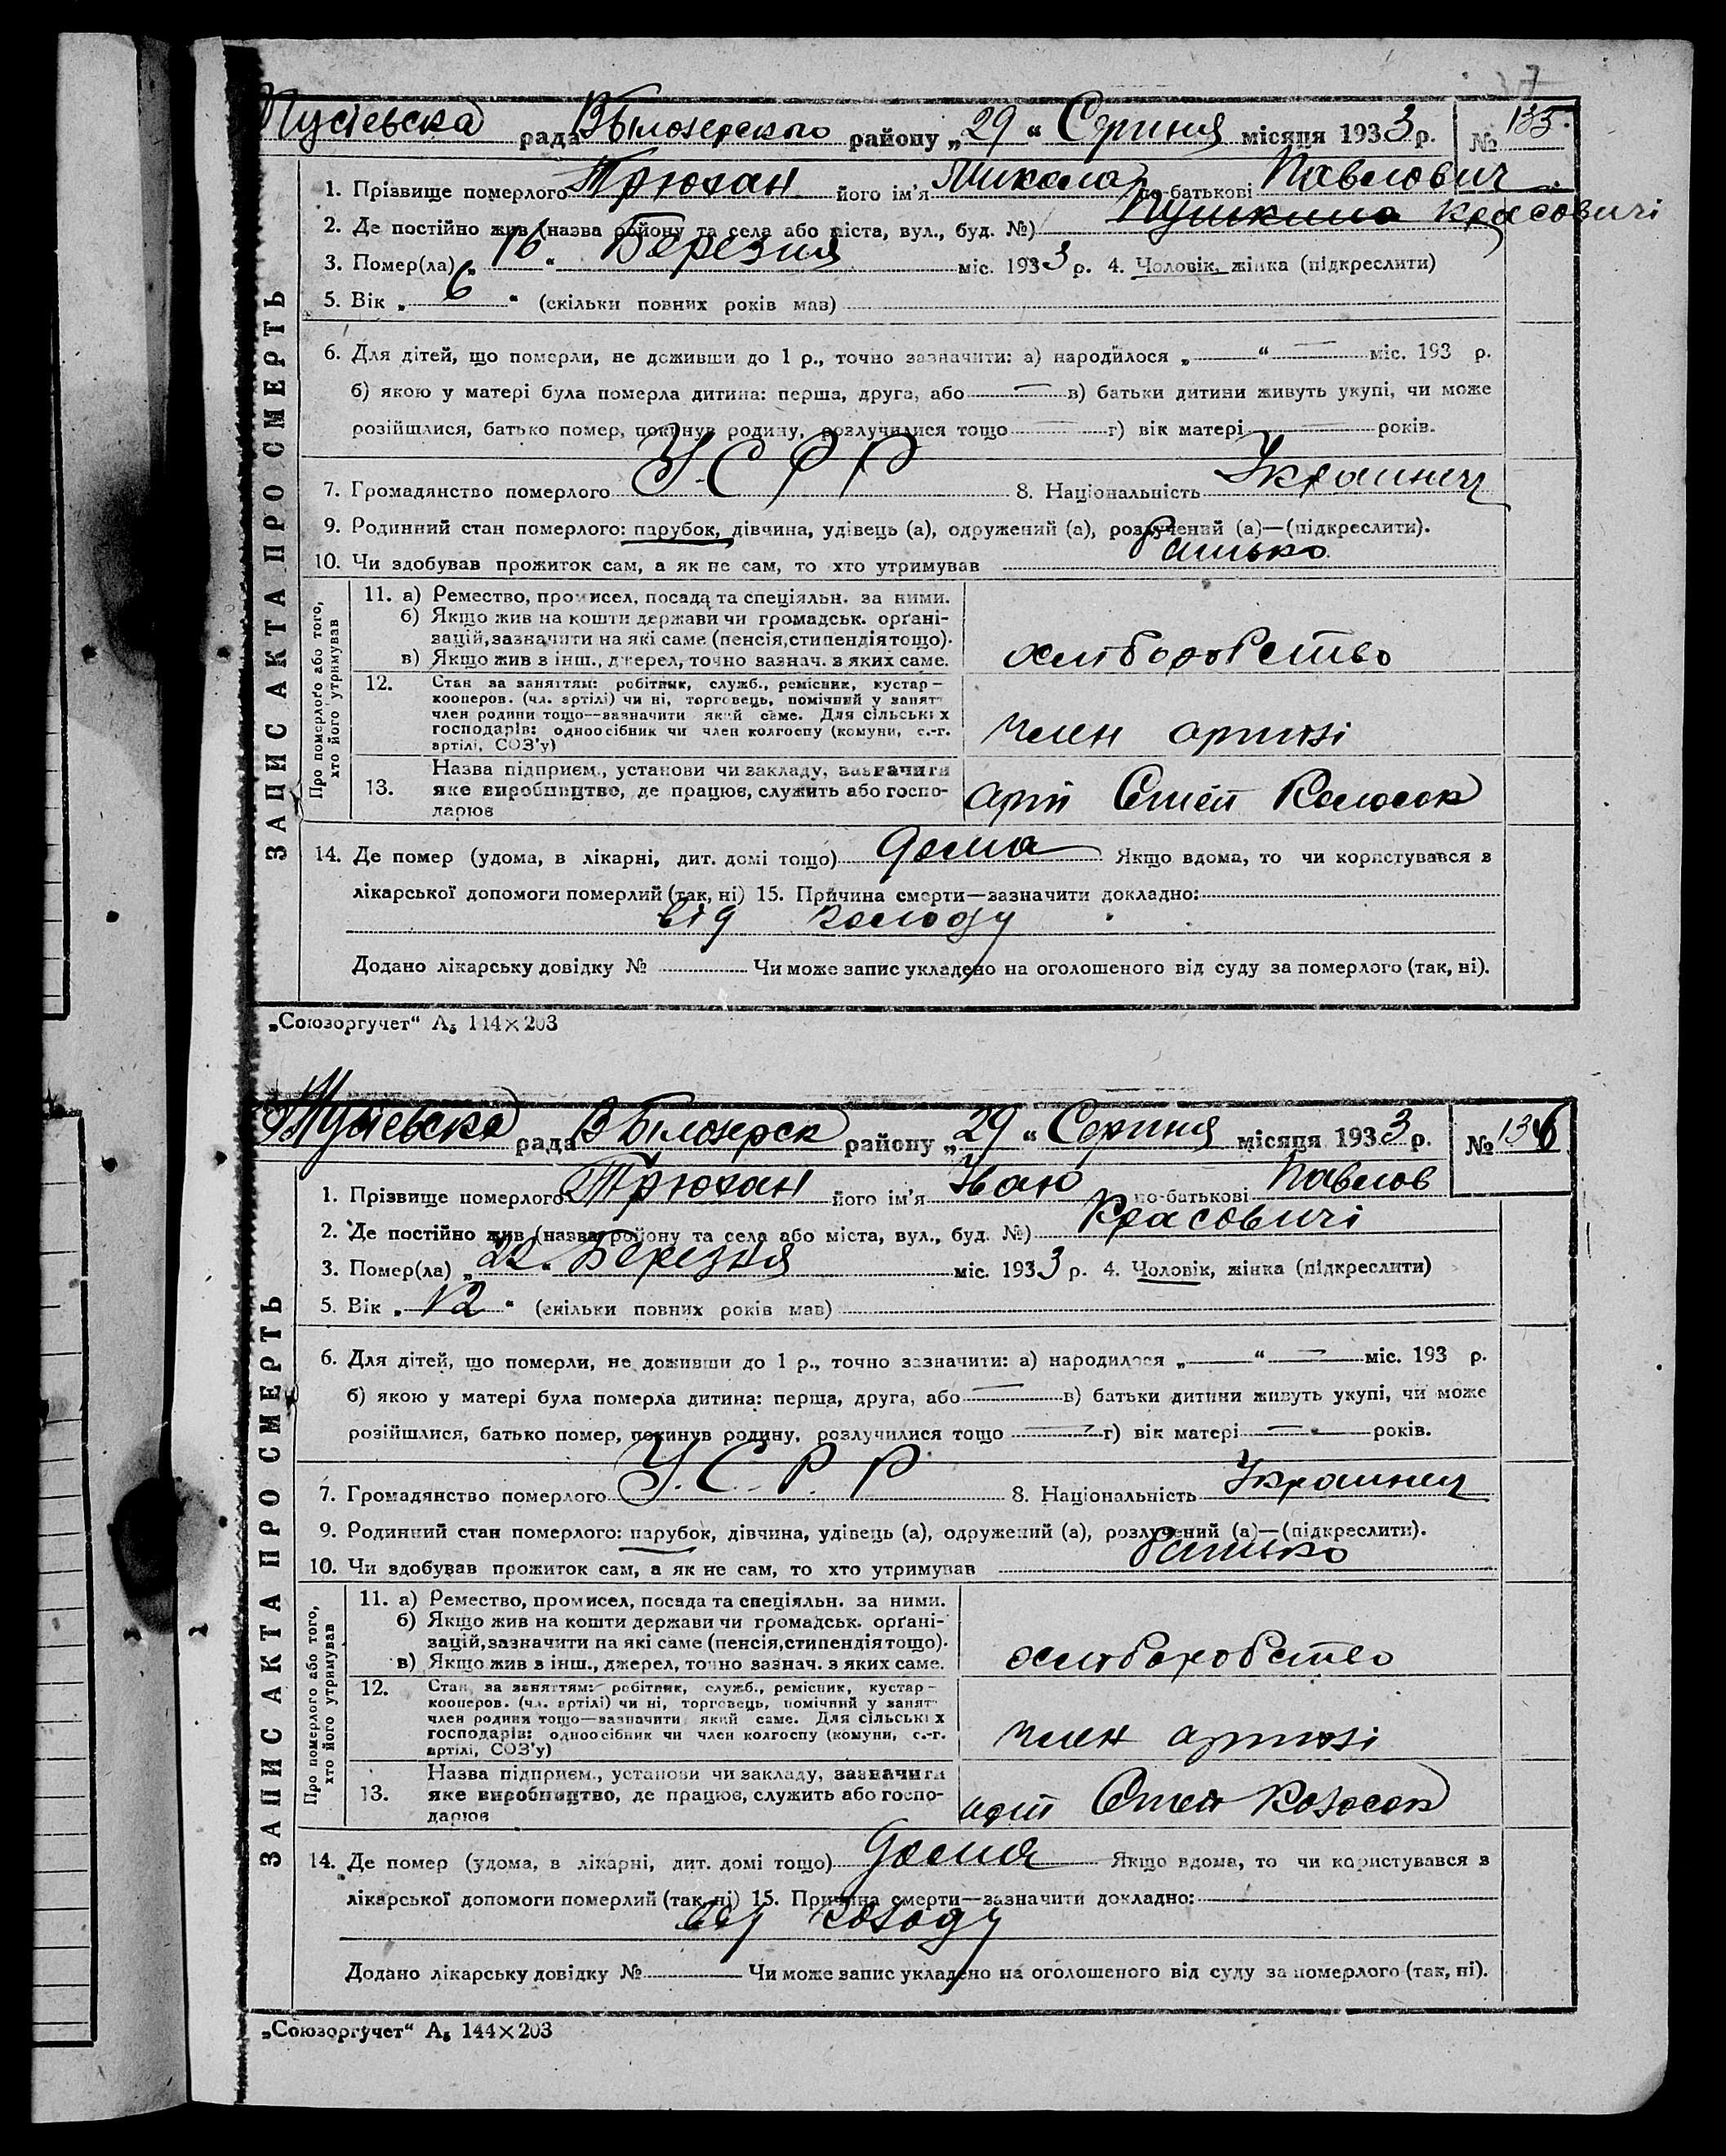 рада В Білозерського району „29“ Серпня місяця 1933 р. № 135.
1. Прізвище померлого Трюхан його ім'я Микола по-батькові Павлович
2. Де постійно жив (назва району та села або міста, вул., буд. №) Красовичі
3. Помер(ла) „16“ Березня міс. 1933 р. 4. Чоловік, жінка (підкреслити)
5. Вік „6“ (скільки повних років мав)
6. Для дітей, що померли, не доживши до 1 р., точно зазначити: а) народилося „—“ — міс. 193 р.
б) якою у матері була померла дитина: перша, друга, або — в) батьки дитини живуть укупі, чи може
розійшлися, батько помер, покинув родину, розлучилися тощо — г) вік матері — років.
7. Громадянство померлого У.С.Р.Р 8. Національність Украинец
9. Родинний стан померлого: парубок, дівчина, удівець (а), одружений (а), розлучений (а)—(підкреслити).
10. Чи здобував прожиток сам, а як не сам, то хто утримував Батько
ЗАПИС АКТА ПРО СМЕРТЬ
Про померлого або того,
хто його утримував
11. а) Ремество, промисел, посада та спеціяльн. за ними.
б) Якщо жив на кошти держави чи громадськ. орґані-
зацій, зазначити на які саме (пенсія, стипендія тощо).
в) Якщо жив з інш., джерел, точно зазнач. з яких саме.
хліборобство
12. Стан за заняттям: робітник, служб., ремісник, кустар—
кооперов. (чл. артілі) чи ні, торговець, помічний у занят
член родини тощо—зазначити який саме. Для сільських
господарів: одноосібник чи член колгоспу (комуни, с.-г.
артілі, СОЗ'у)
член артілі
Назва підприєм., установи чи закладу, зазначити
13. яке виробництво, де працює, служить або госпо-
дарює
арт Степ Колосок
14. Де помер (удома, в лікарні, дит. домі тощо) дома Якщо вдома, то чи користувався з
лікарської допомоги померлий (так, ні) 15. Причина смерти—зазначити докладно:
від голоду
Додано лікарську довідку № Чи може запис укладено на оголошеного від суду за померлого (так, ні).
„Союзоргучет“ А5 144×203
рада В Білозерск району „29“ Серпня місяця 1933 р. № 136
1. Прізвище померлого Трюхан його ім'я Іван по-батькові Павлов
2. Де постійно жив (назва району та села або міста, вул., буд. №) Красовичі
3. Помер(ла) „22“ Березня міс. 1933 р. 4. Чоловік, жінка (підкреслити)
5. Вік „12“ (скільки повних років мав)
6. Для дітей, що померли, не доживши до 1 р., точно зазначити: а) народилося „—“ — міс. 193 р.
б) якою у матері була померла дитина: перша, друга, або — в) батьки дитини живуть укупі, чи може
розійшлися, батько помер, покинув родину, розлучилися тощо — г) вік матері — років.
7. Громадянство померлого У.С.Р.Р 8. Національність Украинец
9. Родинний стан померлого: парубок, дівчина, удівець (а), одружений (а), розлучений (а)—(підкреслити).
10. Чи здобував прожиток сам, а як не сам, то хто утримував Батько
ЗАПИС АКТА ПРО СМЕРТЬ
Про померлого або того,
хто його утримував
11. а) Ремество, промисел, посада та спеціяльн. за ними.
б) Якщо жив на кошти держави чи громадськ. орґані-
зацій, зазначити на які саме (пенсія, стипендія тощо).
в) Якщо жив з інш., джерел, точно зазнач. з яких саме.
хліборобство
12. Стан за заняттям: робітник, служб., ремісник, кустар—
кооперов. (чл. артілі) чи ні, торговець, помічний у занят
член родини тощо—зазначити який саме. Для сільських
господарів: одноосібник чи член колгоспу (комуни, с.-г.
артілі, СОЗ'у)
член артілі
Назва підприєм., установи чи закладу, зазначити
13. яке виробництво, де працює, служить або госпо-
дарює
арт Степ Колосок
14. Де помер (удома, в лікарні, дит. домі тощо) дома Якщо вдома, то чи користувався з
лікарської допомоги померлий (так, ні) 15. Причина смерти—зазначити докладно:
від голоду
Додано лікарську довідку № Чи може запис укладено на оголошеного від суду за померлого (так, ні).
„Союзоргучет“ А5 144×203